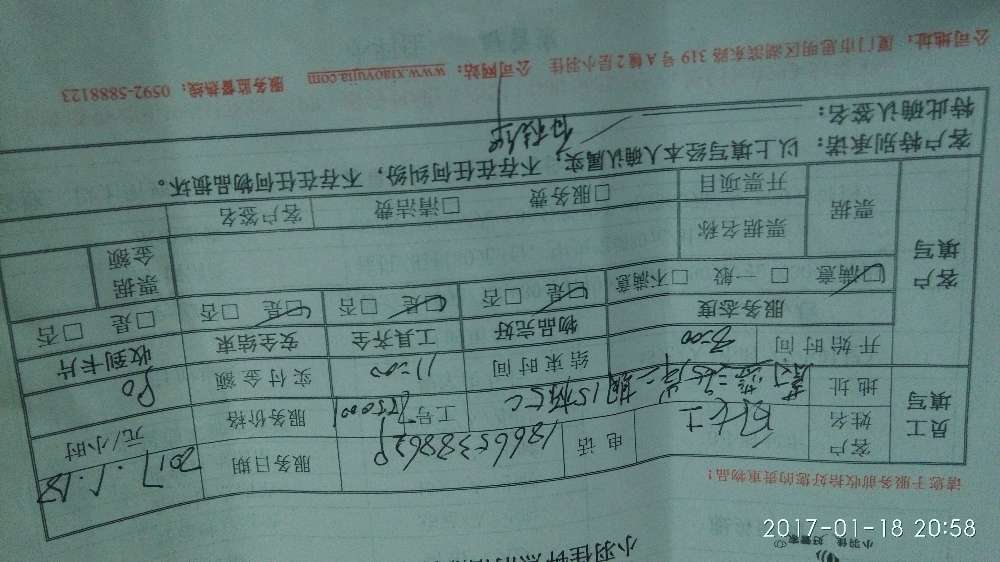 小羽佳 好管家
小羽佳钟点
请您于服务前收拾好您的贵重物品！
员工填写
客户姓名
电话
服务日期 2017.1.18
地址
工号
服务价格 元/小时
开始时间 8:00
结束时间 11:00
实付金额 90
收到卡片
客户填写
服务态度
物品完好
工具齐全
安全结束
□满意 □一般 □不满意
□是 □否
□是 □否
□是 □否
□是 □否
票据
票据名称
票据金额
开票项目
□服务费 □清洁费
客户签名
客户特别承诺：以上填写经本人确认属实，不存在任何纠纷，不存在任何物品损坏。
特此确认签名：
公司地址：厦门市思明区湖滨东路 319 号 A 幢 2 层小羽佳 公司网站：www.xiaoyujia.com 服务监督热线：0592-5888123
2017-01-18 20:58